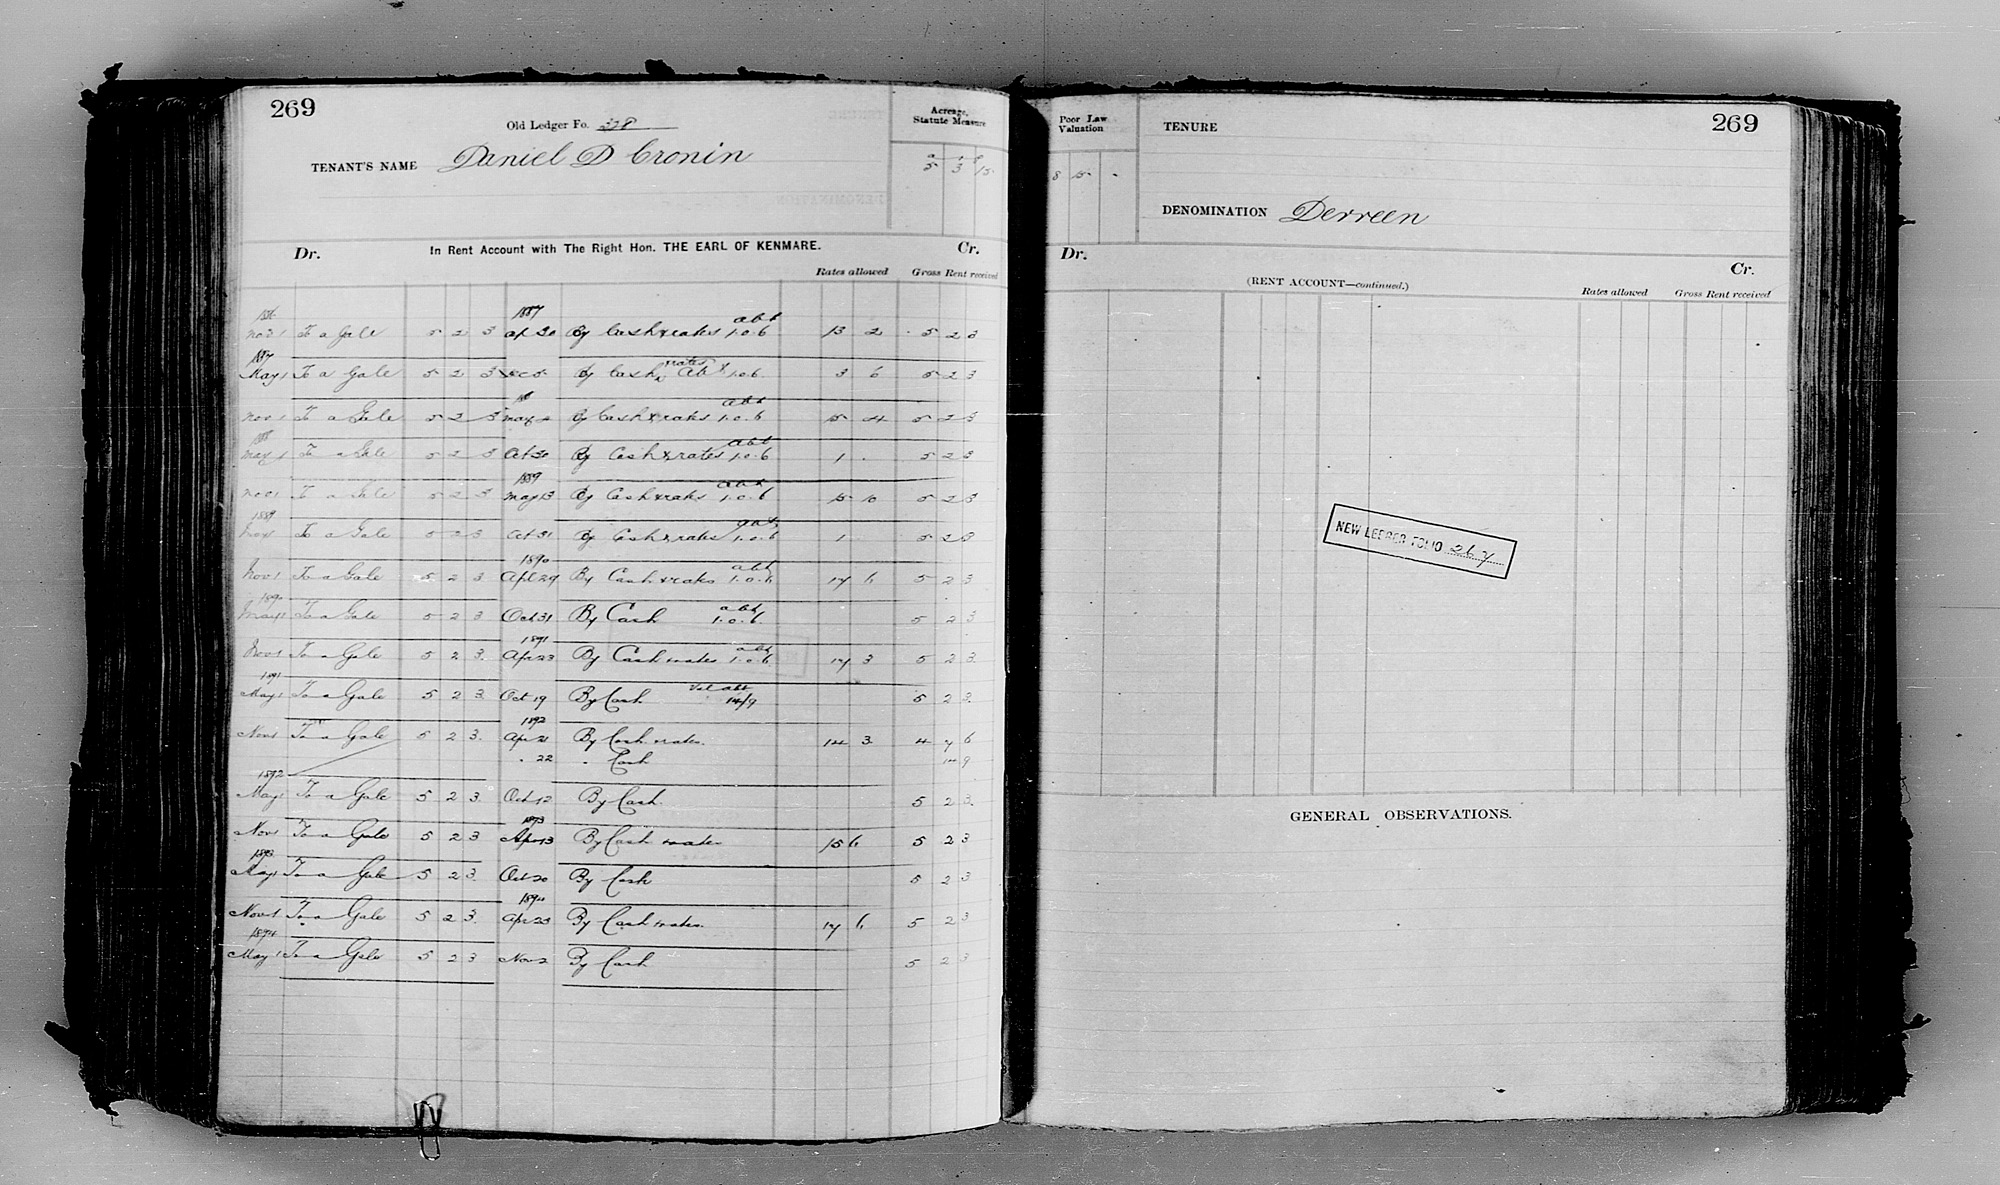 269
Old Ledger Fo. 328
TENANT'S NAME Daniel D Cronin
Acreage, Statute Measure
a r p
5 3 15
Dr. In Rent Account with The Right Hon. THE EARL OF KENMARE. Cr.
Rates allowed Gross Rent received
1886 1887 abt
Nov 1 To a Gale 5 2 3 Ap 30 By Cash & rates 1.0.6 13 2 5 2 3
1887 rates
May 1 To a Gale 5 2 3 Dec 5 By Cash Abt 1.0.6 3 6 5 2 3
abt
Nov 1 To a Gale 5 2 3 May By Cash & rates 1.0.6 15 4 5 2 3
1888 abt
May 1 To a Gale 5 2 3 Oct 30 By Cash & rates 1.0.6 1 . 5 2 3
1889 abt
Nov 1 To a Gale 5 2 3 May 13 By Cash & rates 1.0.6 15 10 5 2 3
1889 abt
To a Gale 5 2 3 Oct 31 By Cash & rates 1.0.6 1 5 2 3
1890 abt
Nov 1 To a Gale 5 2 3 Apl 29 By Cash & rates 1.0.6 17 6 5 2 3
1890 abt
May 1 To a Gale 5 2 3 Oct 31 By Cash 1.0.6 5 2 3
1891 abt
Nov 1 To a Gale 5 2 3 Apr 23 By Cash rates 1.0.6 17 3 5 2 3
1891 Vol abt
May 1 To a Gale 5 2 3 Oct 19 By Cash 14/9 5 2 3
1892
Nov 1 To a Gale 5 2 3 Apr 21 By Cash rates. 14 3 4 7 6
" 22 " Cash 14 9
1892
May 1 To a Gale 5 2 3 Oct 12 By Cash 5 2 3
1893
Nov 1 To a Gale 5 2 3 Apr 13 By Cash rates 15 6 5 2 3
1893
May 1 To a Gale 5 2 3 Oct 20 By Cash 5 2 3
1894
Nov 1 To a Gale 5 2 3 Apr 23 By Cash rates. 17 6 5 2 3
1894
May 1 To a Gale 5 2 3 Nov 2 By Cash 5 2 3
Poor Law Valuation
8 15 .
TENURE
269
DENOMINATION Derreen
Dr. Cr.
(RENT ACCOUNT—continued.)
Rates allowed Gross Rent received
NEW LEDGER FOLIO 267
GENERAL OBSERVATIONS.